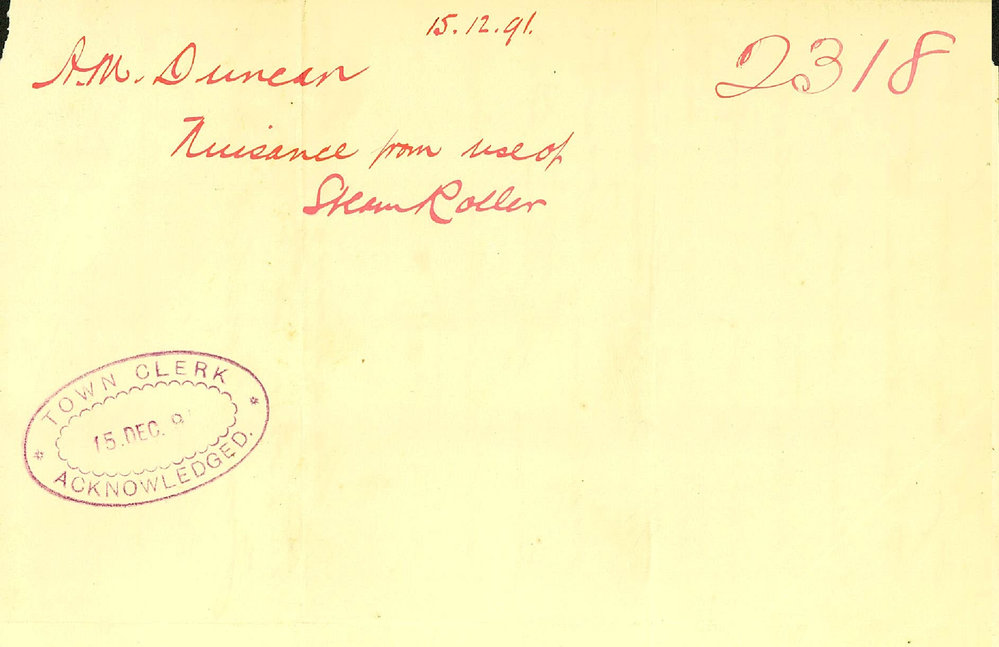 15.12.91.
A.M. Duncan
2318
Nuisance from use of
Steam Roller
TOWN CLERK
15. DEC. 9
* *
ACKNOWLEDGED.